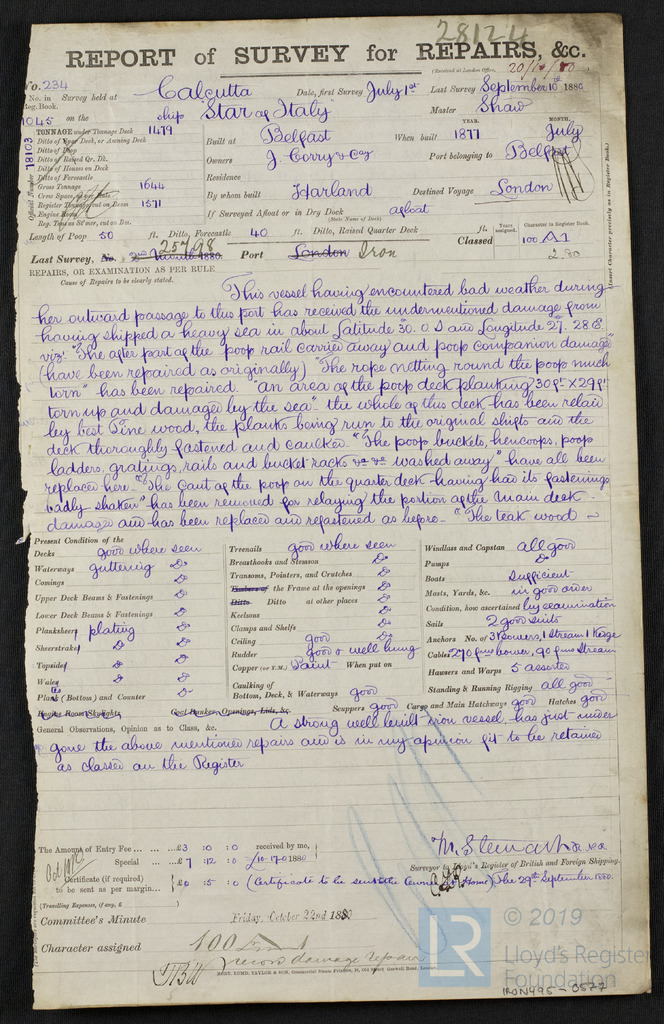 28124
REPORT of SURVEY for REPAIRS, &c.
(Received at London Office, 20/10/80
No. 234
No. in Reg. Book. Survey held at Calcutta Date, first Survey July 1st Last Survey September 10th 1880
1045 on the ship "Star of Italy" Master Shaw
TONNAGE under Tonnage Deck 1479
Ditto of Spar Deck, or Awning Deck
Ditto of Poop
Ditto of Raised Qr. Dk.
Ditto of Houses on Deck
Ditto of Forecastle
Gross Tonnage 1644
Register Tonnage cut on Beam 1571
Official Number 78103
Built at Belfast When built YEAR. 1877 MONTH. July
Owners J. Corry & Coy Port belonging to Belfast
Residence
By whom built Harland Destined Voyage London
If Surveyed Afloat or in Dry Dock afloat
(State Name of Dock)
Length of Poop 50 ft. Ditto, Forecastle 40 ft. Ditto, Raised Quarter Deck ft. Classed
Years assigned. Character in Register Book. 100 A1
2.80
(Insert Character precisely as in Register Book.)
Last Survey, No. 25798 Port London Iron
REPAIRS, OR EXAMINATION AS PER RULE
Cause of Repairs to be clearly stated.
This vessel having encountered bad weather during
her outward passage to this port has received the undermentioned damage from
having shipped a heavy sea in about Latitude 30.0 S and Longitude 27.28 E
viz: "The after part of the poop rail carried away and poop companion damaged"
(have been repaired as originally) "The rope netting round the poop much
torn" has been repaired. "an area of the poop deck planking 30ft x 29ft
torn up and damaged by the sea" the whole of this deck has been relaid
by best Pine wood, the planks being run to the original shifts and the
deck thoroughly fastened and caulked. "The poop buckets, hencoops, poop
ladders, gratings, rails and bucket racks &c &c washed away" have all been
replaced here. "The Gant of the poop on the quarter deck having had its fastenings
badly shaken" has been removed for relaying the portion of the main deck
damaged and has been replaced and refastened as before. "The teak wood
Present Condition of the
Decks good where seen
Waterways guttering Do
Comings Do
Upper Deck Beams & Fastenings Do
Lower Deck Beams & Fastenings Do
Planksheer plating Do
Sheerstrakes Do Do
Topsides Do Do
Wales Do Do
Plank (Bottom) and Counter Do
Engine Room Skylights Coal Bunker, Openings, Lids, &c.
Treenails good where seen
Breasthooks and Stemson Do
Transoms, Pointers, and Crutches Do
Timbers of the Frame at the openings Do
Ditto Ditto at other places Do
Keelsons Do
Clamps and Shelfs Do
Ceiling good Do
Rudder good & well hung
Copper (or Y.M.) Paint When put on
Caulking of
Bottom, Deck, & Waterways good
Windlass and Capstan all good
Pumps Do
Boats Sufficient
Masts, Yards, &c. in good order
Condition, how ascertained by examination
Sails 2 good suits
Anchors No. of 3 Bowers, 1 Stream 1 Kedge
Cables 270 fms bower, 90 fms Stream
Hawsers and Warps 5 assorted
Standing & Running Rigging all good
Scuppers good Cargo and Main Hatchways good Hatches good
General Observations, Opinion as to Class, &c. A strong well built iron vessel, has just under
gone the above mentioned repairs and is in my opinion fit to be retained
as classed on the Register
The Amount of Entry Fee ... £3 : 0 : 0 received by me,
Special ... £7 : 12 : 0 £10-17-0 1880
Certificate (if required) to be sent as per margin... £0 : 5 : 0 (Certificate to be sent the Owners at Home) The 29th September 1880.
(Travelling Expenses, if any, £ )
M. Stewart
Surveyor to Lloyd's Register of British and Foreign Shipping.
Committee's Minute Friday, October 22nd 1880
Character assigned 100 A1
record damage repairs
MORT. EDMD. TAYLOR & SON, Commercial Steam Printers
LR
© 2019
Lloyd's Register
Foundation
IRON495-0577